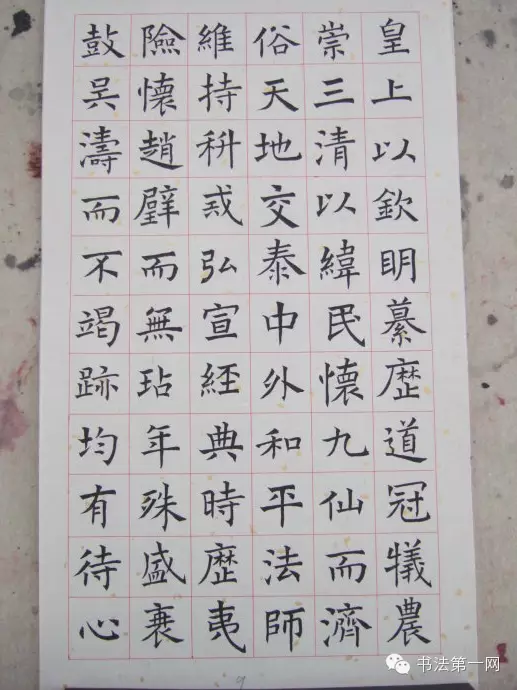 皇上以欽眀纂歷道冠犧農
崇三清以緯民懷九仙而濟
俗天地交泰中外和平法師
維持科戒弘宣經典時歷夷
險懷趙璧而無玷年殊盛衰
鼓吳濤而不竭跡均有待心
9
书法第一网